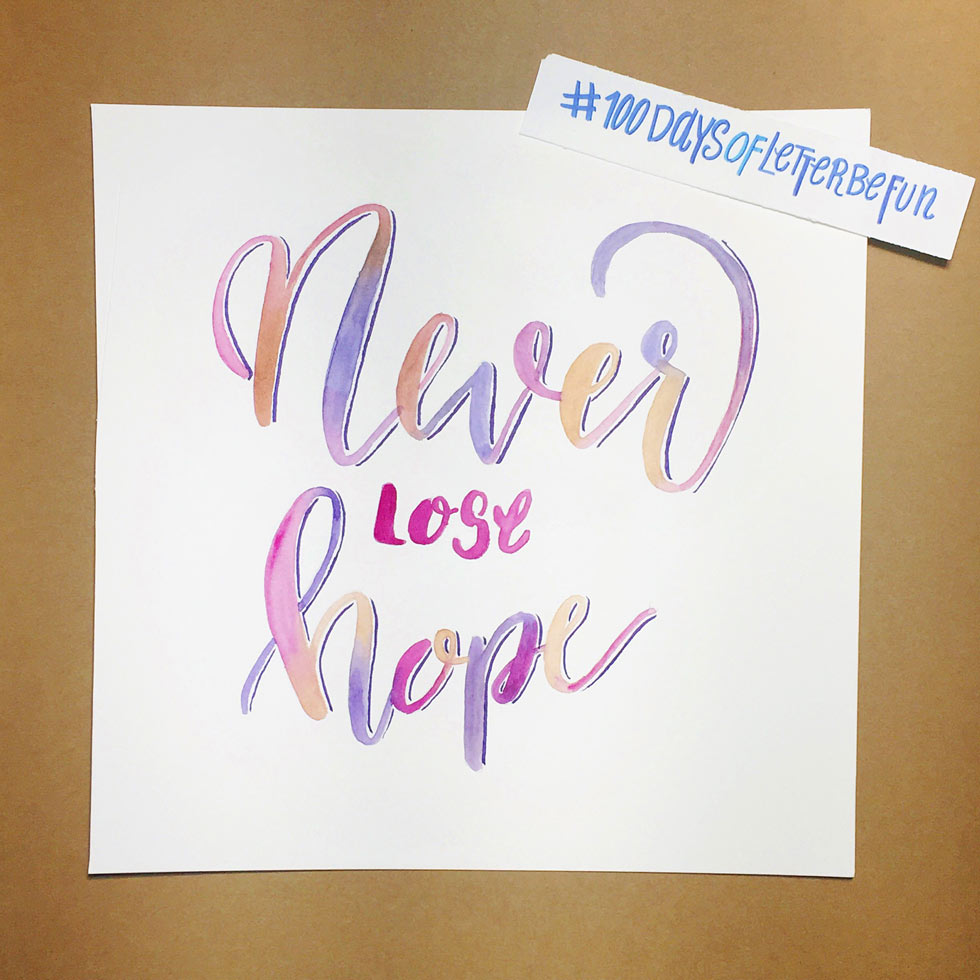 #100DaysOfLetterBeFun
Never
Lose
hope